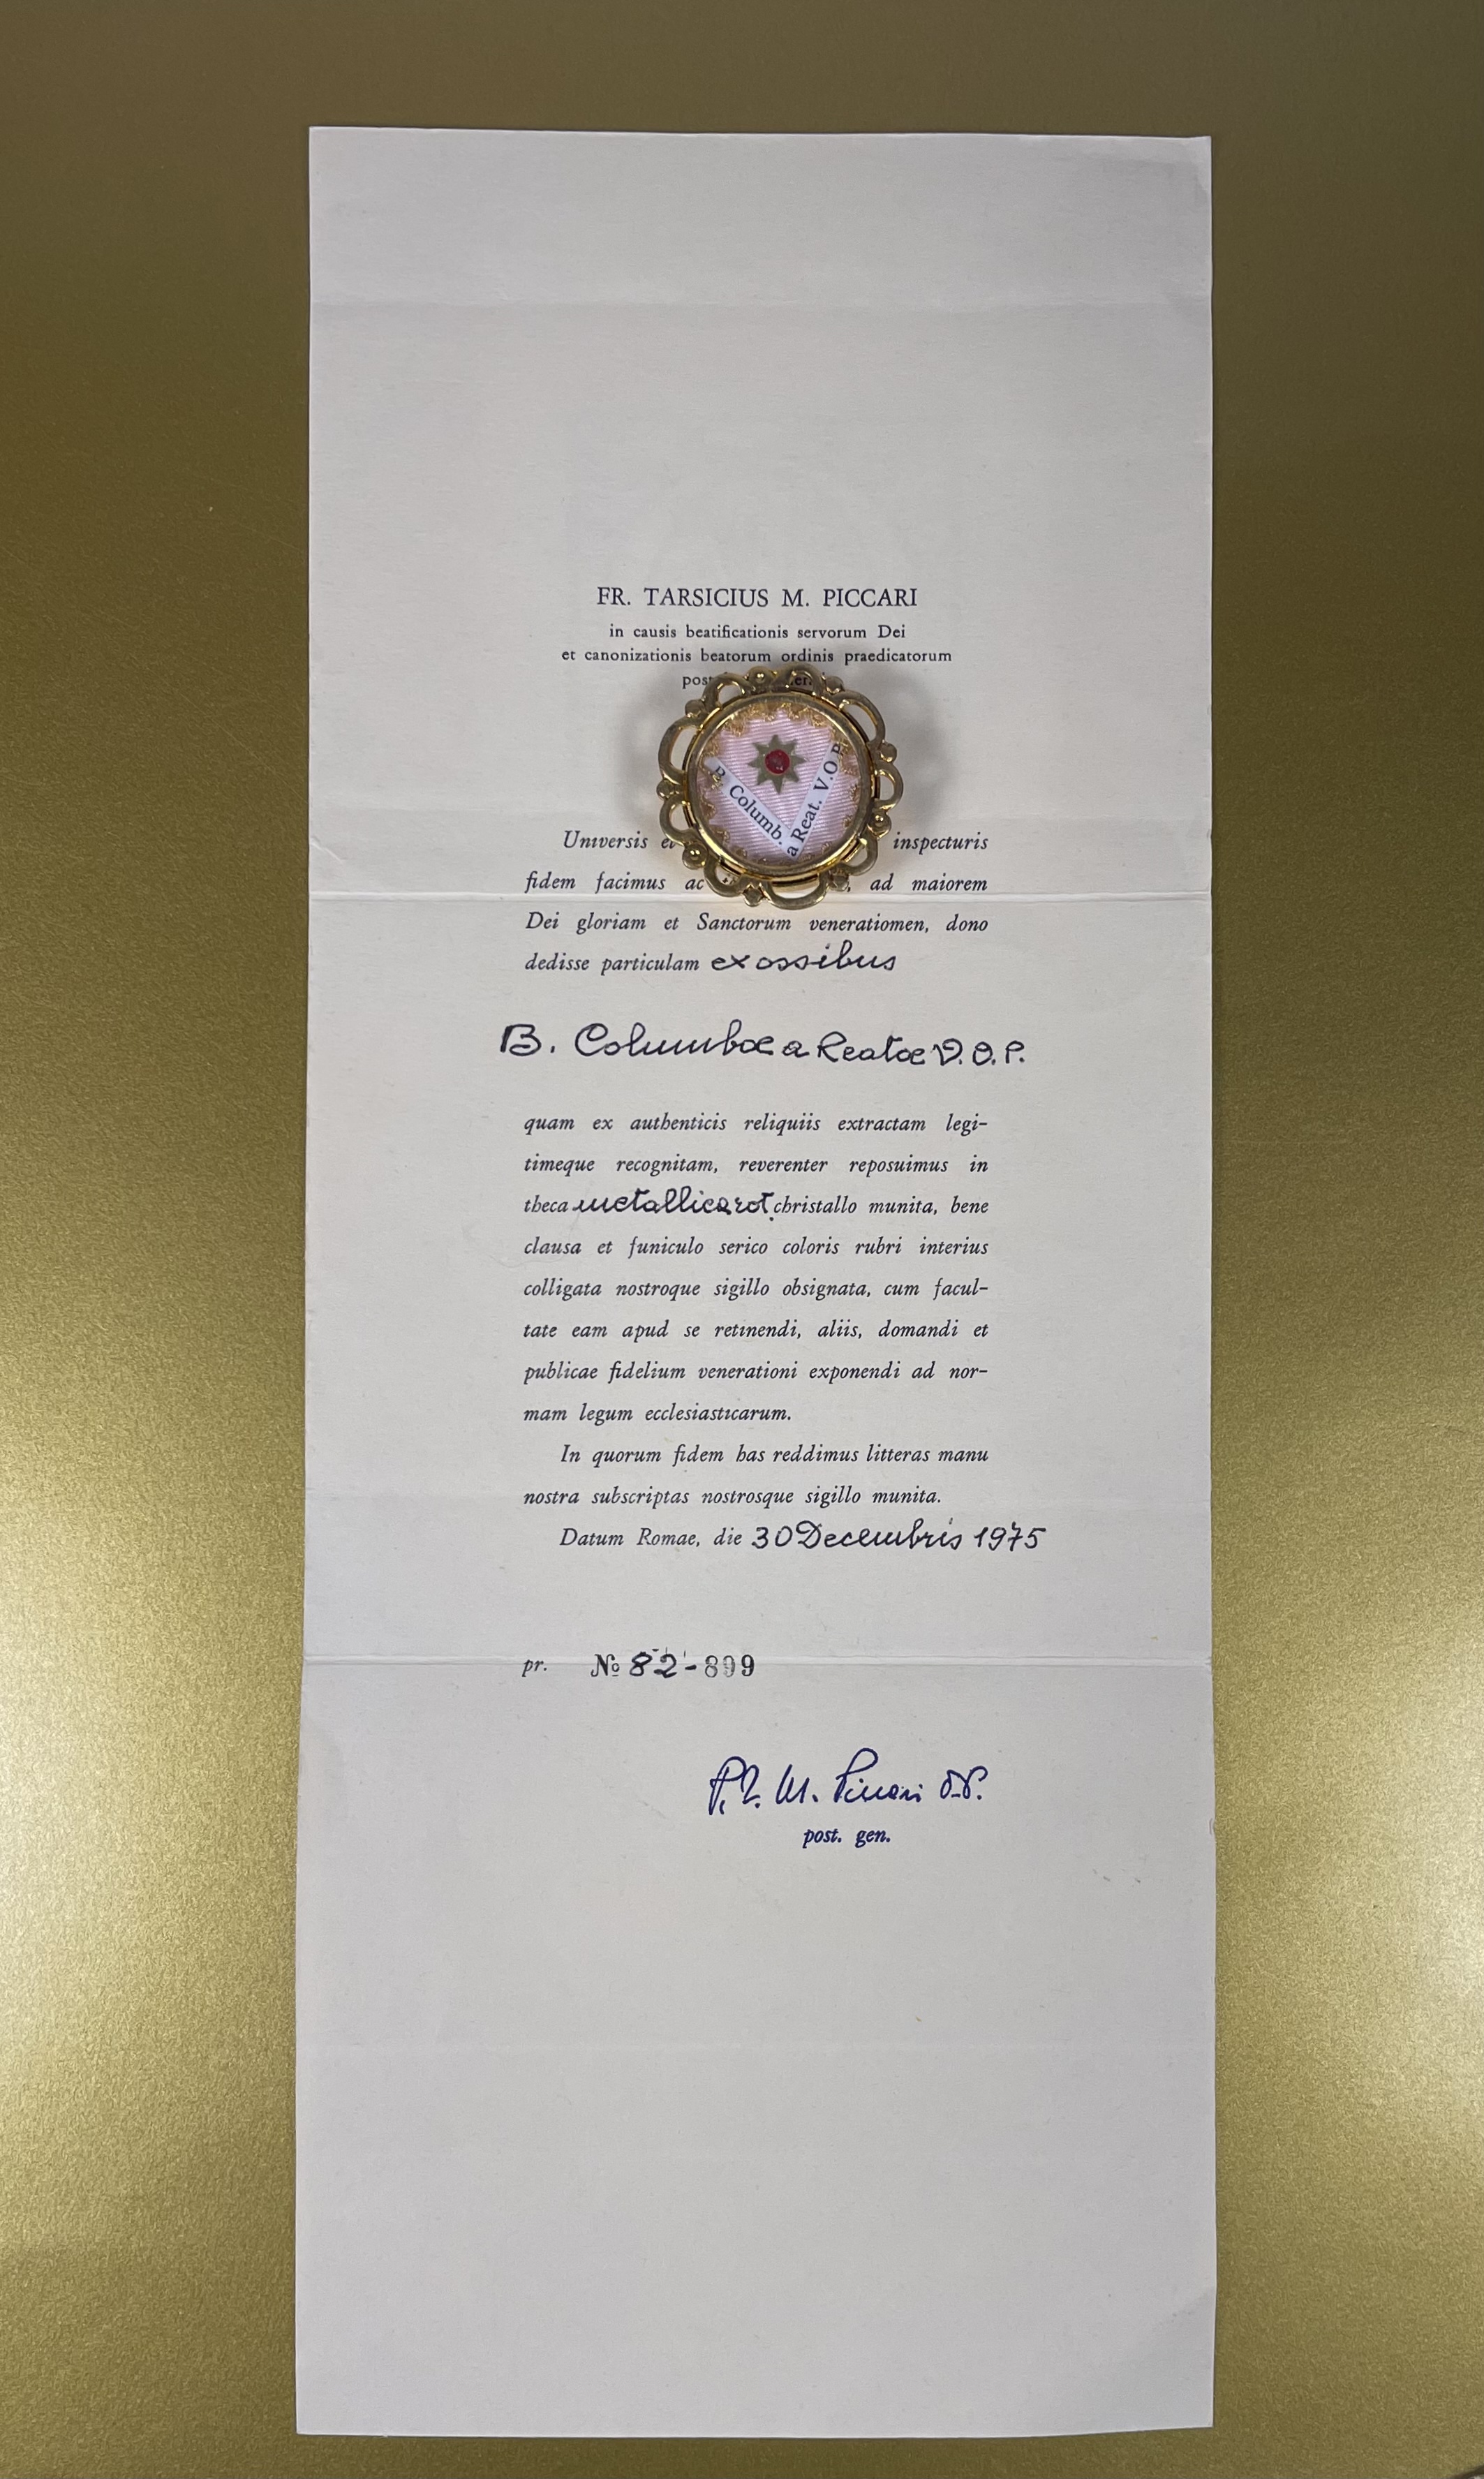 FR. TARSICIUS M. PICCARI
in causis beatificationis servorum Dei
et canonizationis beatorum ordinis praedicatorum
B. Columb.
a Reat. V.O.P.
Universis inspecturis
fidem facimus ac ad maiorem
Dei gloriam et Sanctorum veneratiomen, dono
dedisse particulam ex ossibus
B. Columbæ a Reatæ V.O.P.
quam ex authenticis reliquiis extractam legi-
timeque recognitam, reverenter reposuimus in
theca metallica rot. christallo munita, bene
clausa et funiculo serico coloris rubri interius
colligata nostroque sigillo obsignata, cum facul-
tate eam apud se retinendi, aliis, domandi et
publicae fidelium venerationi exponendi ad nor-
mam legum ecclesiasticarum.
In quorum fidem has reddimus litteras manu
nostra subscriptas nostrosque sigillo munita.
Datum Romae, die 30 Decembris 1975
pr. № 82-899
P. T. M. Piccari O.P.
post. gen.